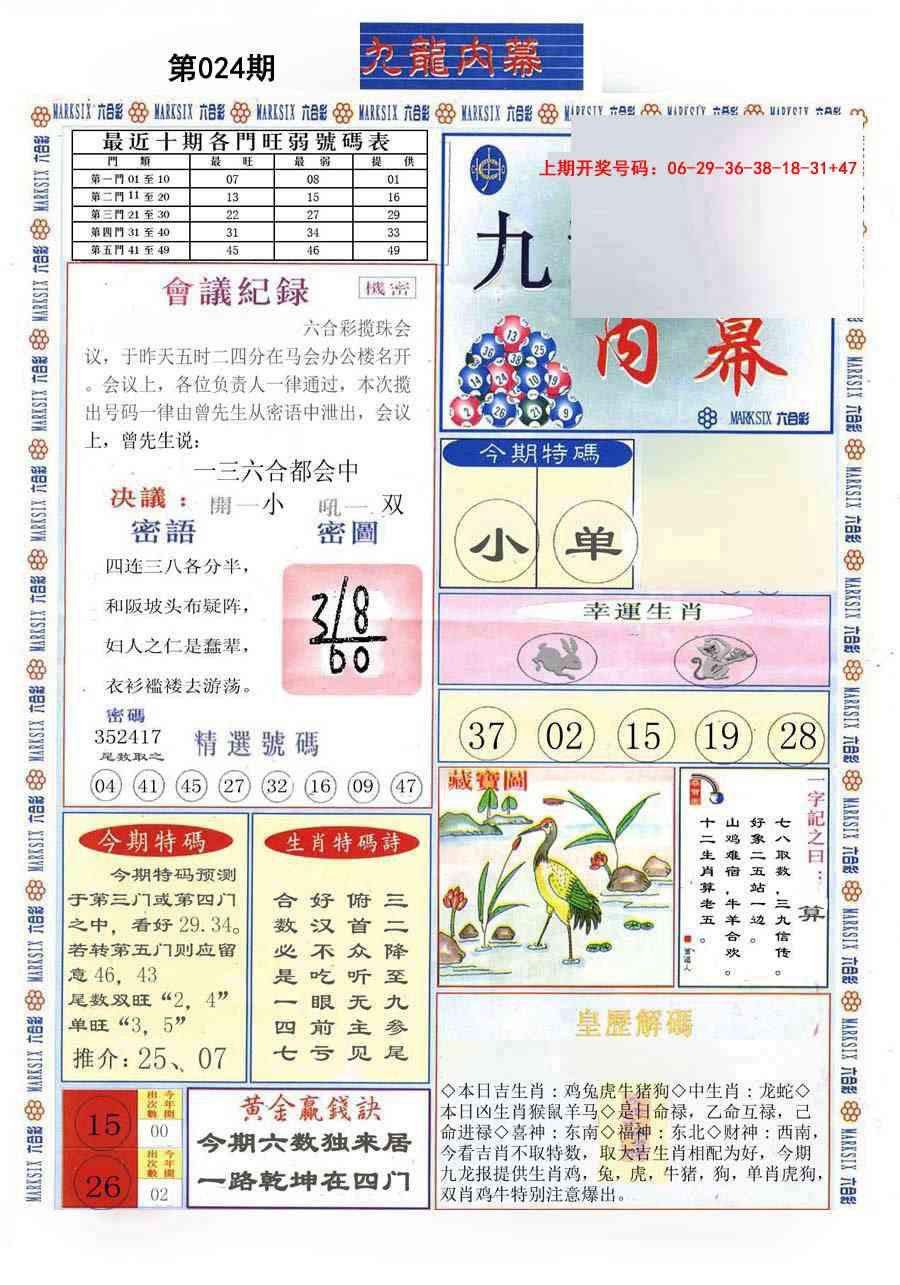 第024期
九龍内幕
MARKSIX 六合彩 MARKSIX 六合彩 MARKSIX 六合彩 MARKSIX 六合彩 MARKSIX 六合彩 MARKSIX 六合彩 MARKSIX 六合彩 MARKSIX 六合彩
最近十期各門旺弱號碼表
門類 最旺 最弱 提供
第一門01至10 07 08 01
第二門11至20 13 15 16
第三門21至30 22 27 29
第四門31至40 31 34 33
第五門41至49 45 46 49
上期开奖号码：06-29-36-38-18-31+47
九
内幕
13
36 38 25
14 24 10 19
2 26 21 9
MARKSIX 六合彩
會議紀録
機密
六合彩揽珠会
议，于昨天五时二四分在马会办公楼名开
。会议上，各位负责人一律通过，本次揽
出号码一律由曾先生从密语中泄出，会议
上，曾先生说：
一三六合都会中
决議：開一小 吼一双
密語 密圖
四连三八各分半，
和阪坡头布疑阵，
妇人之仁是蠢辈，
衣衫褴褛去游荡。
3/8
60
密碼
352417
尾数取之
精選號碼
04 41 45 27 32 16 09 47
今期特碼
小 单
幸運生肖
37 02 15 19 28
藏寶圖
一字記之曰：
算
七八取数，三九信传。
好象二五站一边。
山鸡难宿，牛羊合欢。
十二生肖算老五。
今期特碼
今期特码预测
于第三门或第四门
之中，看好29.34。
若转第五门则应留
意46，43
尾数双旺“2，4”
单旺“3，5”
推介：25、07
生肖特碼詩
三二降至九参尾
俯首众听无主见
好汉不吃眼前亏
合数必是一四七
皇歷解碼
◇本日吉生肖：鸡兔虎牛猪狗◇中生肖：龙蛇◇
本日凶生肖猴鼠羊马◇是日命禄，乙命互禄，己
命进禄◇喜神：东南◇福神：东北◇财神：西南，
今看吉肖不取特数，取大吉生肖相配为好，今期
九龙报提供生肖鸡，兔，虎，牛猪，狗，单肖虎狗，
双肖鸡牛特别注意爆出。
15 今年開出次數 00
26 今年開出次數 02
黄金贏錢訣
今期六数独来居
一路乾坤在四门